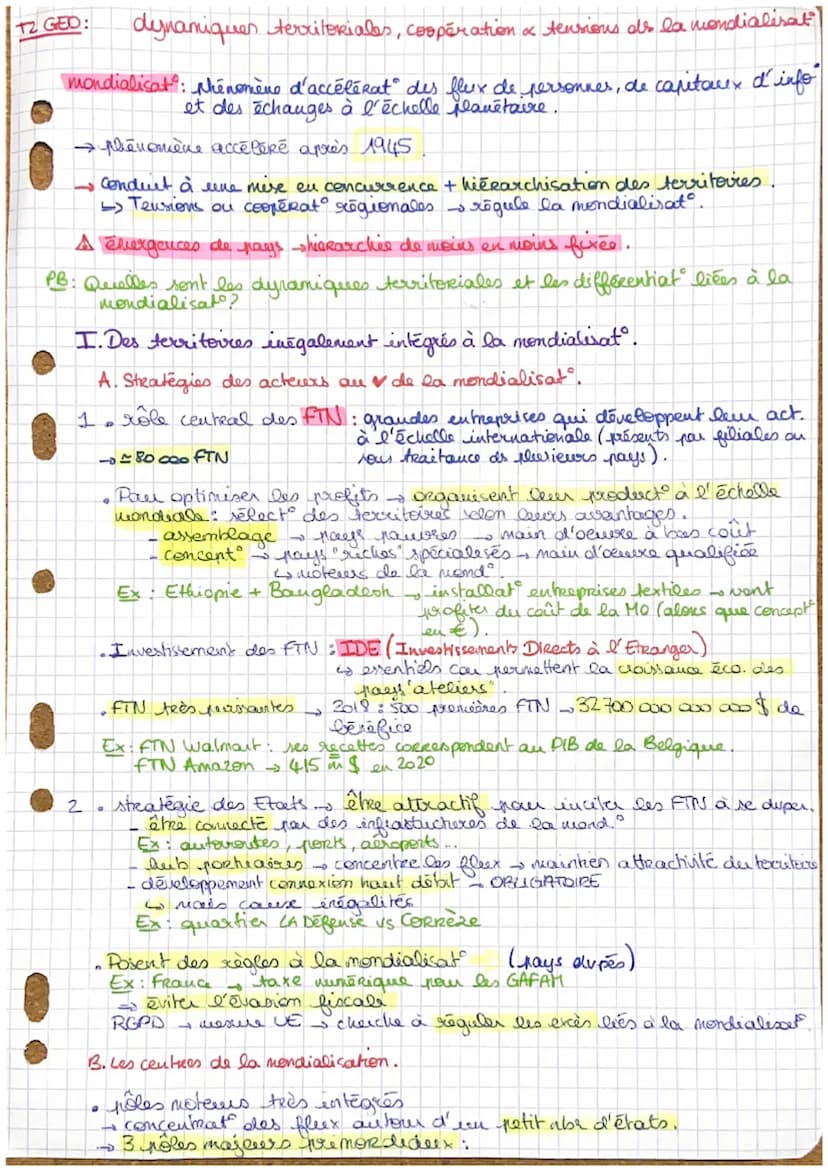 T2 GEO: dynamiques territoriales, coopération & tensions ds la mondialisat°
mondialisat°: phénomène d'accélérat° des flux de personnes, de capitaux d'info°
et des échanges à l'échelle planétaire.
→ phénomène accéléré après 1945.
→ Conduit à une mise en concurrence + hiérarchisation des territoires.
↳ Tensions ou coopérat° régionales → régule la mondialisat°.
⚠ émergences de pays → hiérarchie de moins en moins fixée.
PB: Quelles sont les dynamiques territoriales et les différentiat° liées à la
mondialisat°?
I. Des territoires inégalement intégrés à la mondialisat°.
A. Stratégies des acteurs au ♥ de la mondialisat°.
1 • rôle central des FTN : grandes entreprises qui développent leur act.
à l'échelle internationale (présents par filiales ou
→ ≃ 80 000 FTN sous traitance ds plusieurs pays).
• Pour optimiser les profits → organisent leur product° à l'échelle
mondiale : sélect° des territoires selon leurs avantages.
- assemblage → pays pauvres → main d'oeuvre à bas coût
- concept° → pays "riches" spécialisés → main d'oeuvre qualifiée
↳ moteurs de la mond°
Ex : Ethiopie + Bangladesh → installat° entreprises textiles → vont
profiter du coût de la MO (alors que concept°
en €).
• Investissement des FTN : IDE (Investissements Directs à l'Etranger)
↳ essentiels car permettent la croissance éco. des
pays "ateliers".
• FTN très puissantes → 2018 : 500 premières FTN → 32 700 000 000 000 $ de
bénéfice
Ex: FTN Walmart : ses recettes correspondent au PIB de la Belgique.
FTN Amazon → 415 m $ en 2020
2 • stratégie des Etats → être attractif pour inciter les FTN à se dvper.
- être connecté par des infrastuctures de la mond°
Ex : autoroutes, ports, aéroports...
- hub portuaires → concentre les flux → maintien attractivité du territoire
- développement connexion haut débit → OBLIGATOIRE
↳ mais cause inégalités
Ex : quartier LA Défense vs Corrèze
• Posent des règles à la mondialisat° (pays dvpés)
Ex : France → taxe numérique pour les GAFAM
⇒ éviter l'évasion fiscale
RGPD → mesure UE → cherche à réguler les excès liés à la mondialisat°.
B. Les centres de la mondialisation.
• pôles moteurs très intégrés
→ concentrat° des flux autour d'un petit nbr d'états.
→ 3 pôles majeurs primordiaux :